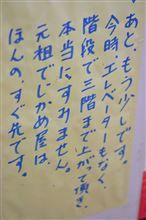 あと、もう少しです。
今時、エレベーターもなく、
階段で三階まで上がって頂き、
本当にすみません。
元祖でじかめ屋は、
ほんの、すぐ先です。